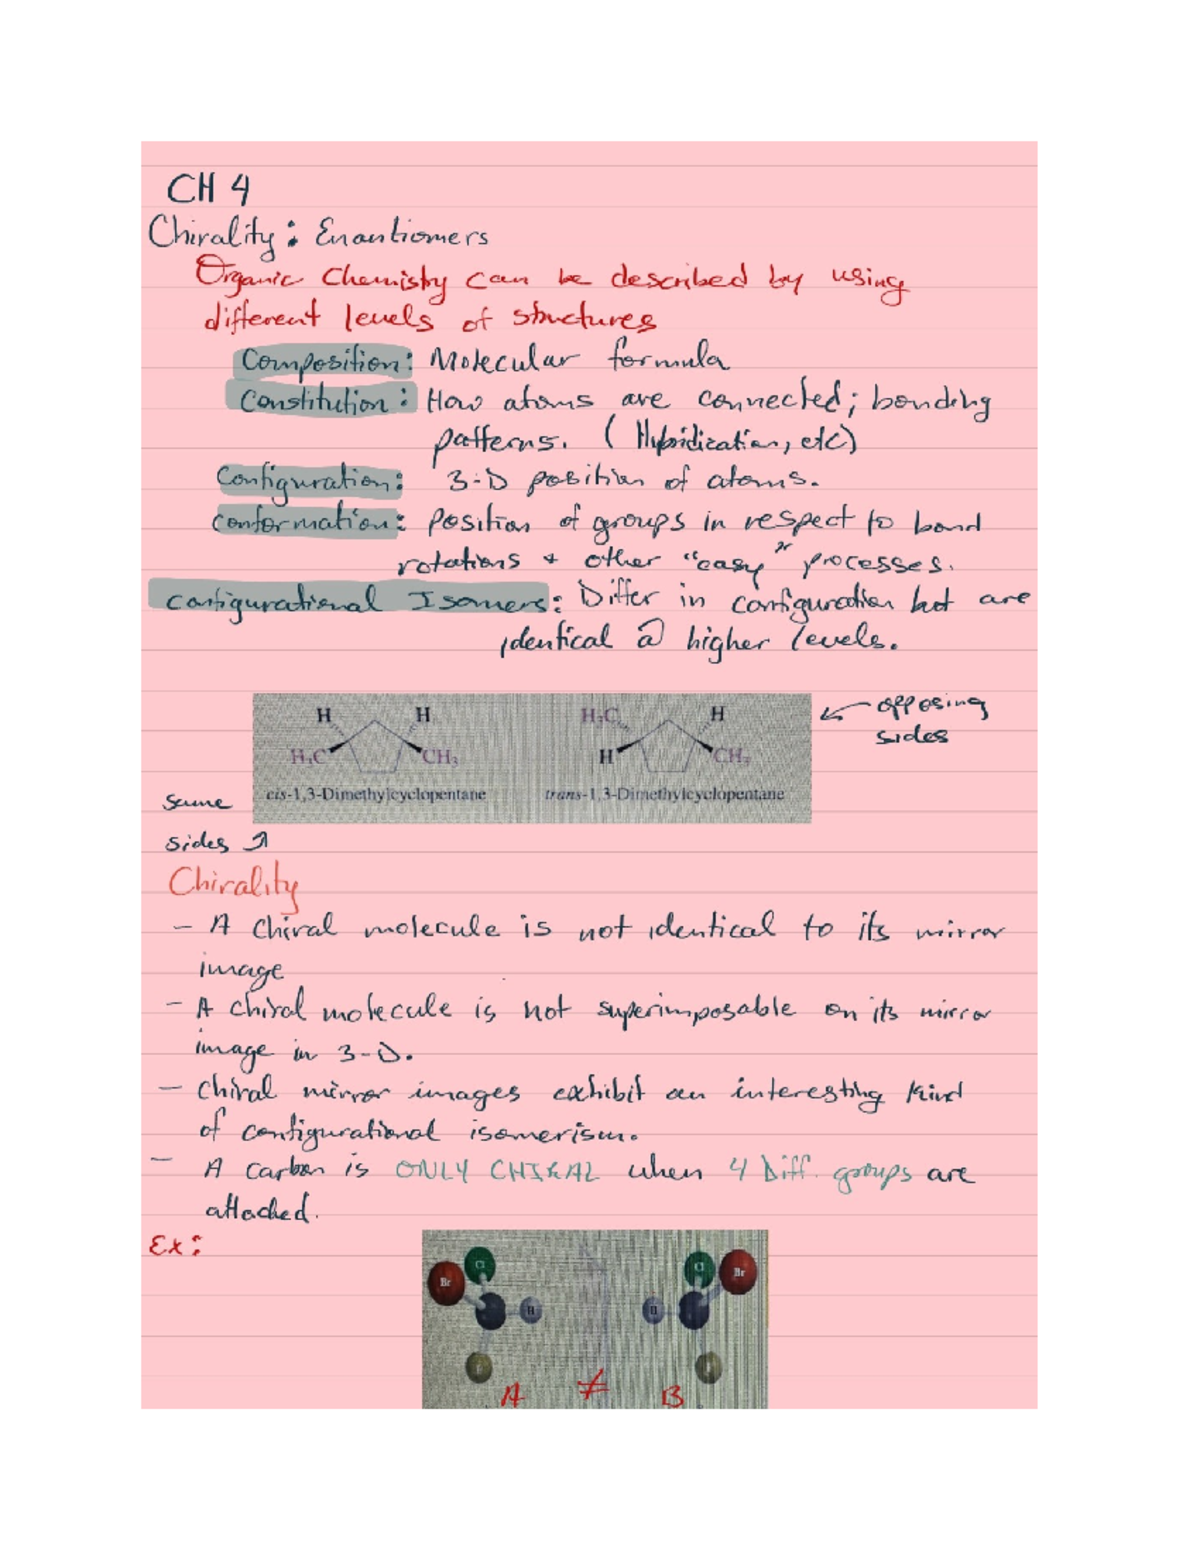 CH 4
Chirality: Enantiomers
Organic Chemistry can be described by using
different levels of structures
Composition: Molecular formula
Constitution: How atoms are connected; bonding
patterns. ( Hybridization, etc)
Configuration: 3-D position of atoms.
Conformation: Position of groups in respect to bond
rotations + other "easy" processes.
Configurational Isomers: Differ in configuration but are
identical @ higher levels.
H H H₃C H
H₃C CH₃ H CH₃
cis-1,3-Dimethylcyclopentane trans-1,3-Dimethylcyclopentane
opposing
sides
same
sides
Chirality
- A chiral molecule is not identical to its mirror
image
- A chiral molecule is not superimposable on its mirror
image in 3-D.
- Chiral mirror images exhibit an interesting kind
of configurational isomerism.
- A carbon is ONLY CHIRAL when 4 Diff. groups are
attached.
Ex:
Br Cl H Cl Br H
A ≠ B